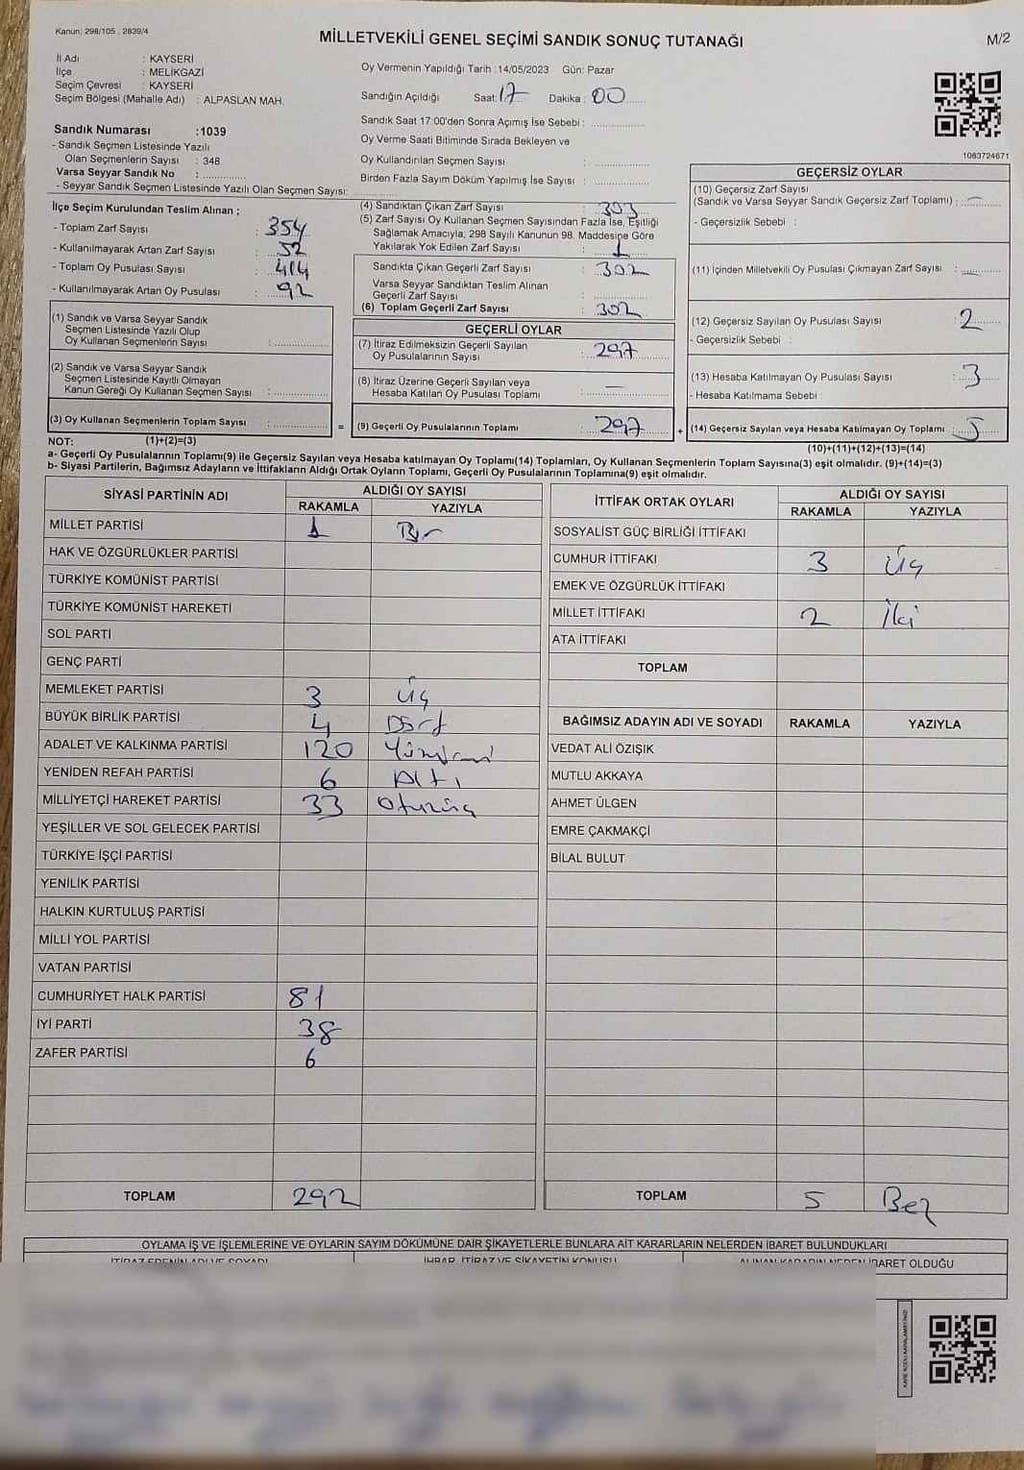 Kanun: 298/105 , 2839/4
MİLLETVEKİLİ GENEL SEÇİMİ SANDIK SONUÇ TUTANAĞI
M/2
İl Adı : KAYSERİ
İlçe : MELİKGAZİ
Seçim Çevresi : KAYSERİ
Seçim Bölgesi (Mahalle Adı) : ALPASLAN MAH.
Oy Vermenin Yapıldığı Tarih :14/05/2023 Gün: Pazar
Sandığın Açıldığı Saat: 17 Dakika : 00
Sandık Saat 17:00'den Sonra Açımış İse Sebebi :
Oy Verme Saati Bitiminde Sırada Bekleyen ve
Oy Kullandırılan Seçmen Sayısı :
Birden Fazla Sayım Döküm Yapılmış İse Sayısı :
1083724671
Sandık Numarası :1039
- Sandık Seçmen Listesinde Yazılı
Olan Seçmenlerin Sayısı : 348
Varsa Seyyar Sandık No :
- Seyyar Sandık Seçmen Listesinde Yazılı Olan Seçmen Sayısı:
İlçe Seçim Kurulundan Teslim Alınan ;
- Toplam Zarf Sayısı : 354
- Kullanılmayarak Artan Zarf Sayısı : 52
- Toplam Oy Pusulası Sayısı : 414
- Kullanılmayarak Artan Oy Pusulası : 92
(1) Sandık ve Varsa Seyyar Sandık
Seçmen Listesinde Yazılı Olup
Oy Kullanan Seçmenlerin Sayısı :
(2) Sandık ve Varsa Seyyar Sandık
Seçmen Listesinde Kayıtlı Olmayan
Kanun Gereği Oy Kullanan Seçmen Sayısı :
(3) Oy Kullanan Seçmenlerin Toplam Sayısı :
=
(4) Sandıktan Çıkan Zarf Sayısı : 303
(5) Zarf Sayısı Oy Kullanan Seçmen Sayısından Fazla İse, Eşitliği
Sağlamak Amacıyla, 298 Sayılı Kanunun 98. Maddesine Göre
Yakılarak Yok Edilen Zarf Sayısı : 1
Sandıkta Çıkan Geçerli Zarf Sayısı : 302
Varsa Seyyar Sandıktan Teslim Alınan
Geçerli Zarf Sayısı :
(6) Toplam Geçerli Zarf Sayısı : 302
GEÇERLİ OYLAR
(7) İtiraz Edilmeksizin Geçerli Sayılan
Oy Pusulalarının Sayısı : 297
(8) İtiraz Üzerine Geçerli Sayılan veya
Hesaba Katılan Oy Pusulası Toplamı : —
(9) Geçerli Oy Pusulalarının Toplamı : 297
+
GEÇERSİZ OYLAR
(10) Geçersiz Zarf Sayısı
(Sandık ve Varsa Seyyar Sandık Geçersiz Zarf Toplamı) : —
- Geçersizlik Sebebi :
(11) İçinden Milletvekili Oy Pusulası Çıkmayan Zarf Sayısı : —
(12) Geçersiz Sayılan Oy Pusulası Sayısı : 2
- Geçersizlik Sebebi :
(13) Hesaba Katılmayan Oy Pusulası Sayısı : 3
- Hesaba Katılmama Sebebi :
(14) Geçersiz Sayılan veya Hesaba Katılmayan Oy Toplamı : 5
NOT: (1)+(2)=(3)
(10)+(11)+(12)+(13)=(14)
a- Geçerli Oy Pusulalarının Toplamı(9) ile Geçersiz Sayılan veya Hesaba katılmayan Oy Toplamı(14) Toplamları, Oy Kullanan Seçmenlerin Toplam Sayısına(3) eşit olmalıdır. (9)+(14)=(3)
b- Siyasi Partilerin, Bağımsız Adayların ve İttifakların Aldığı Ortak Oyların Toplamı, Geçerli Oy Pusulalarının Toplamına(9) eşit olmalıdır.
SİYASİ PARTİNİN ADI ALDIĞI OY SAYISI
RAKAMLA YAZIYLA
MİLLET PARTİSİ 1 Bir
HAK VE ÖZGÜRLÜKLER PARTİSİ
TÜRKİYE KOMÜNİST PARTİSİ
TÜRKİYE KOMÜNİST HAREKETİ
SOL PARTİ
GENÇ PARTİ
MEMLEKET PARTİSİ 3 üç
BÜYÜK BİRLİK PARTİSİ 4 Dört
ADALET VE KALKINMA PARTİSİ 120 Yüzyirmi
YENİDEN REFAH PARTİSİ 6 Altı
MİLLİYETÇİ HAREKET PARTİSİ 33 Otuzüç
YEŞİLLER VE SOL GELECEK PARTİSİ
TÜRKİYE İŞÇİ PARTİSİ
YENİLİK PARTİSİ
HALKIN KURTULUŞ PARTİSİ
MİLLİ YOL PARTİSİ
VATAN PARTİSİ
CUMHURİYET HALK PARTİSİ 81
İYİ PARTİ 38
ZAFER PARTİSİ 6
TOPLAM 292
İTTİFAK ORTAK OYLARI ALDIĞI OY SAYISI
RAKAMLA YAZIYLA
SOSYALİST GÜÇ BİRLİĞİ İTTİFAKI
CUMHUR İTTİFAKI 3 üç
EMEK VE ÖZGÜRLÜK İTTİFAKI
MİLLET İTTİFAKI 2 İki
ATA İTTİFAKI
TOPLAM
BAĞIMSIZ ADAYIN ADI VE SOYADI RAKAMLA YAZIYLA
VEDAT ALİ ÖZIŞIK
MUTLU AKKAYA
AHMET ÜLGEN
EMRE ÇAKMAKÇİ
BİLAL BULUT
TOPLAM 5 Beş
OYLAMA İŞ VE İŞLEMLERİNE VE OYLARIN SAYIM DÖKÜMÜNE DAİR ŞİKAYETLERLE BUNLARA AİT KARARLARIN NELERDEN İBARET BULUNDUKLARI
İTİRAZ EDENİN ADI VE SOYADI İHBAR, İTİRAZ VE ŞİKAYETİN KONUSU ALINAN KARARIN NEDEN İBARET OLDUĞU